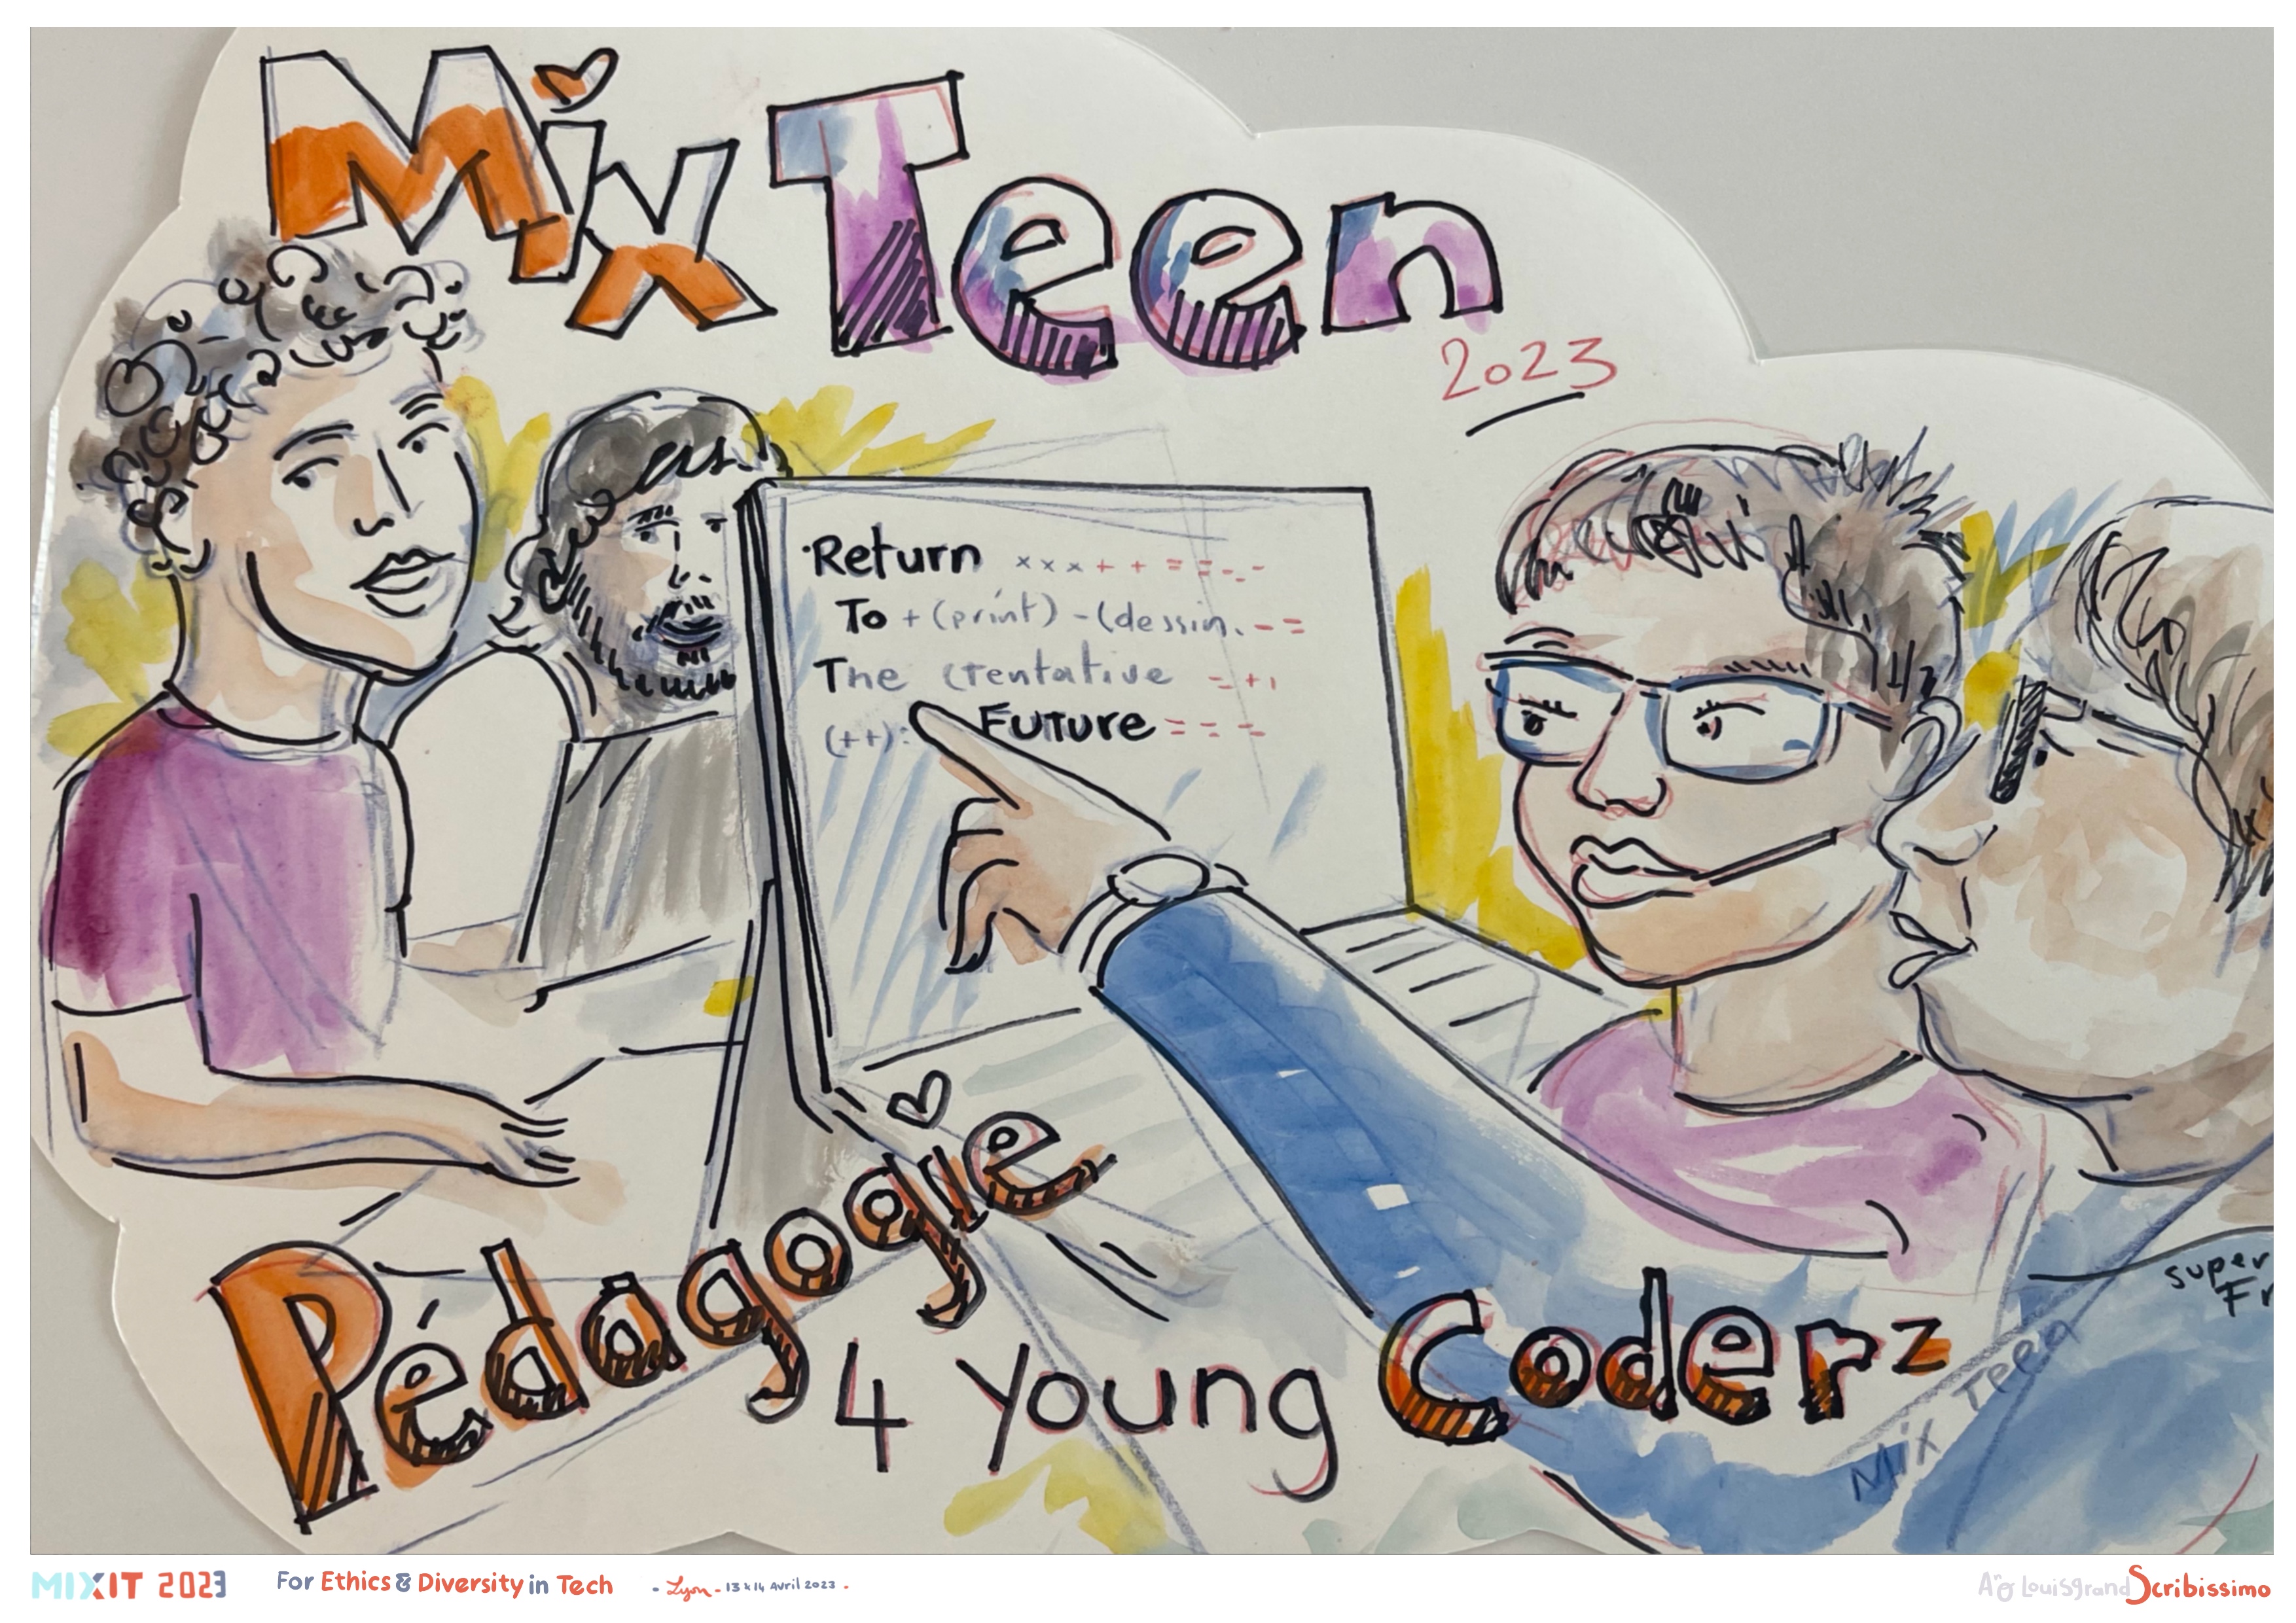 Mix Teen
2023
Return xxx++==-.-
To +(print) -(dessin. -=
The (Tentative =+1
(++): Future ===
Pédagogie
4 Young Coderz
super
Fr
Mix Teen
MIXIT 2023 For Ethics & Diversity in Tech - Lyon - 13 & 14 Avril 2023 -
Louisgrand Scribissimo